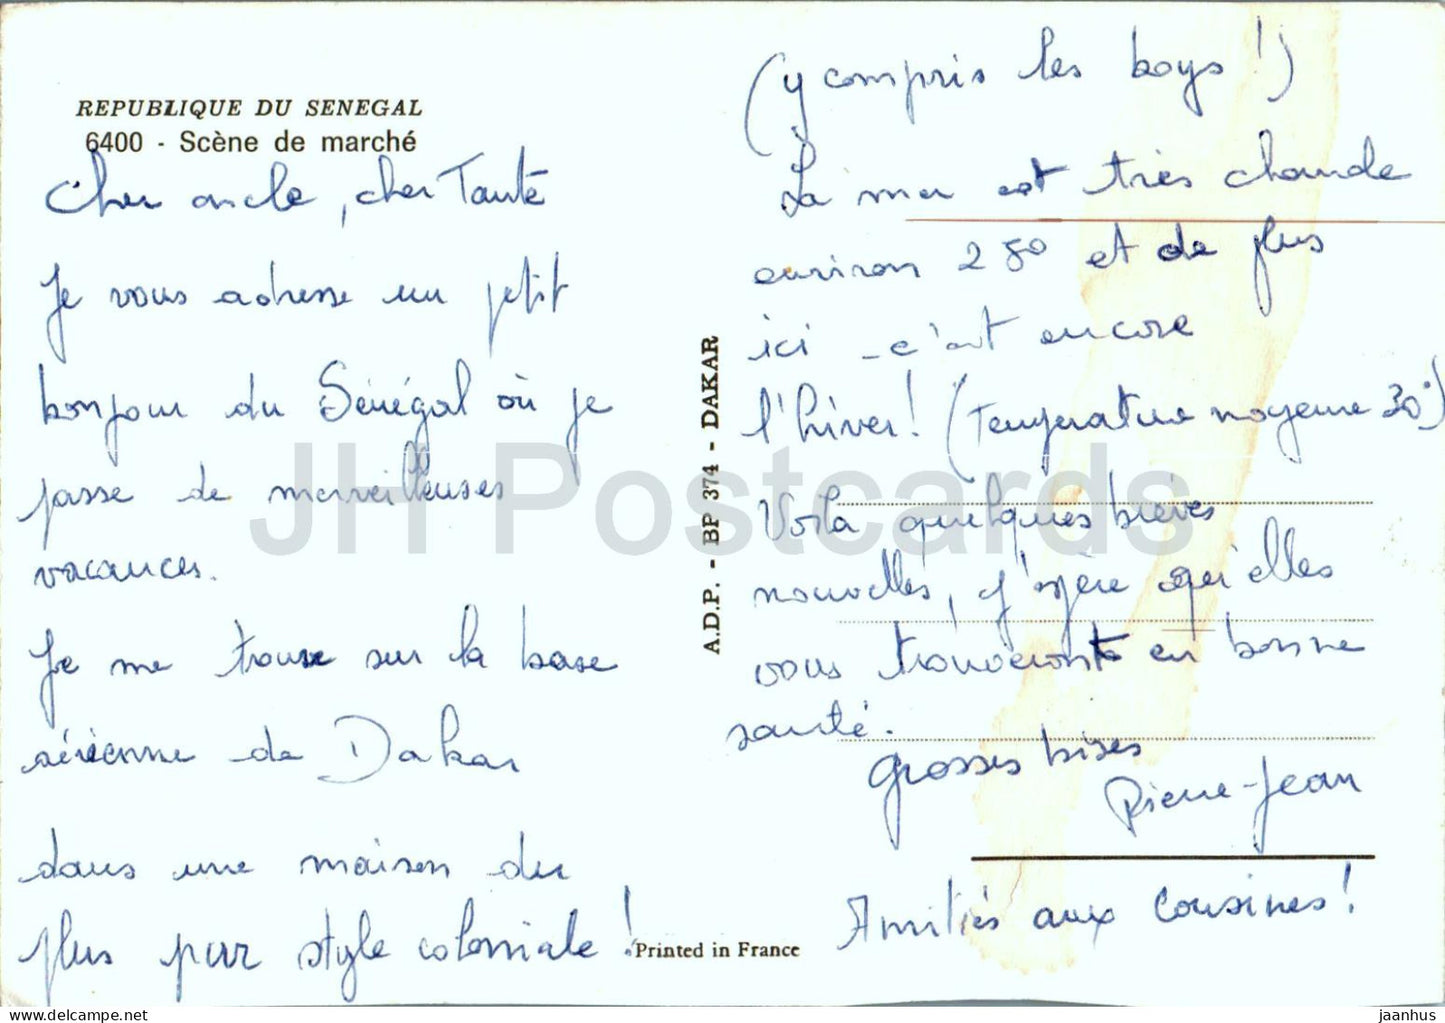 REPUBLIQUE DU SENEGAL
6400 - Scène de marché
Cher oncle, cher Tante
Je vous adresse un petit
bonjour du Sénégal où je
passe de merveilleuses
vacances.
Je me trouve sur la base
aérienne de Dakar
dans une maison du
plus pur style coloniale !
(y compris les boys !)
La mer est très chaude
environ 28° et de plus
ici - c'est encore
l'hiver! (Température moyenne 30°)
Voila quelques brèves
nouvelles, j'espère qu'elles
vous trouveront en bonne
santé.
Grosses bises
Pierre-Jean
Amitiés aux cousines !
A.D.P. - BP 374 - DAKAR
Printed in France
JH Postcards
jaanhus